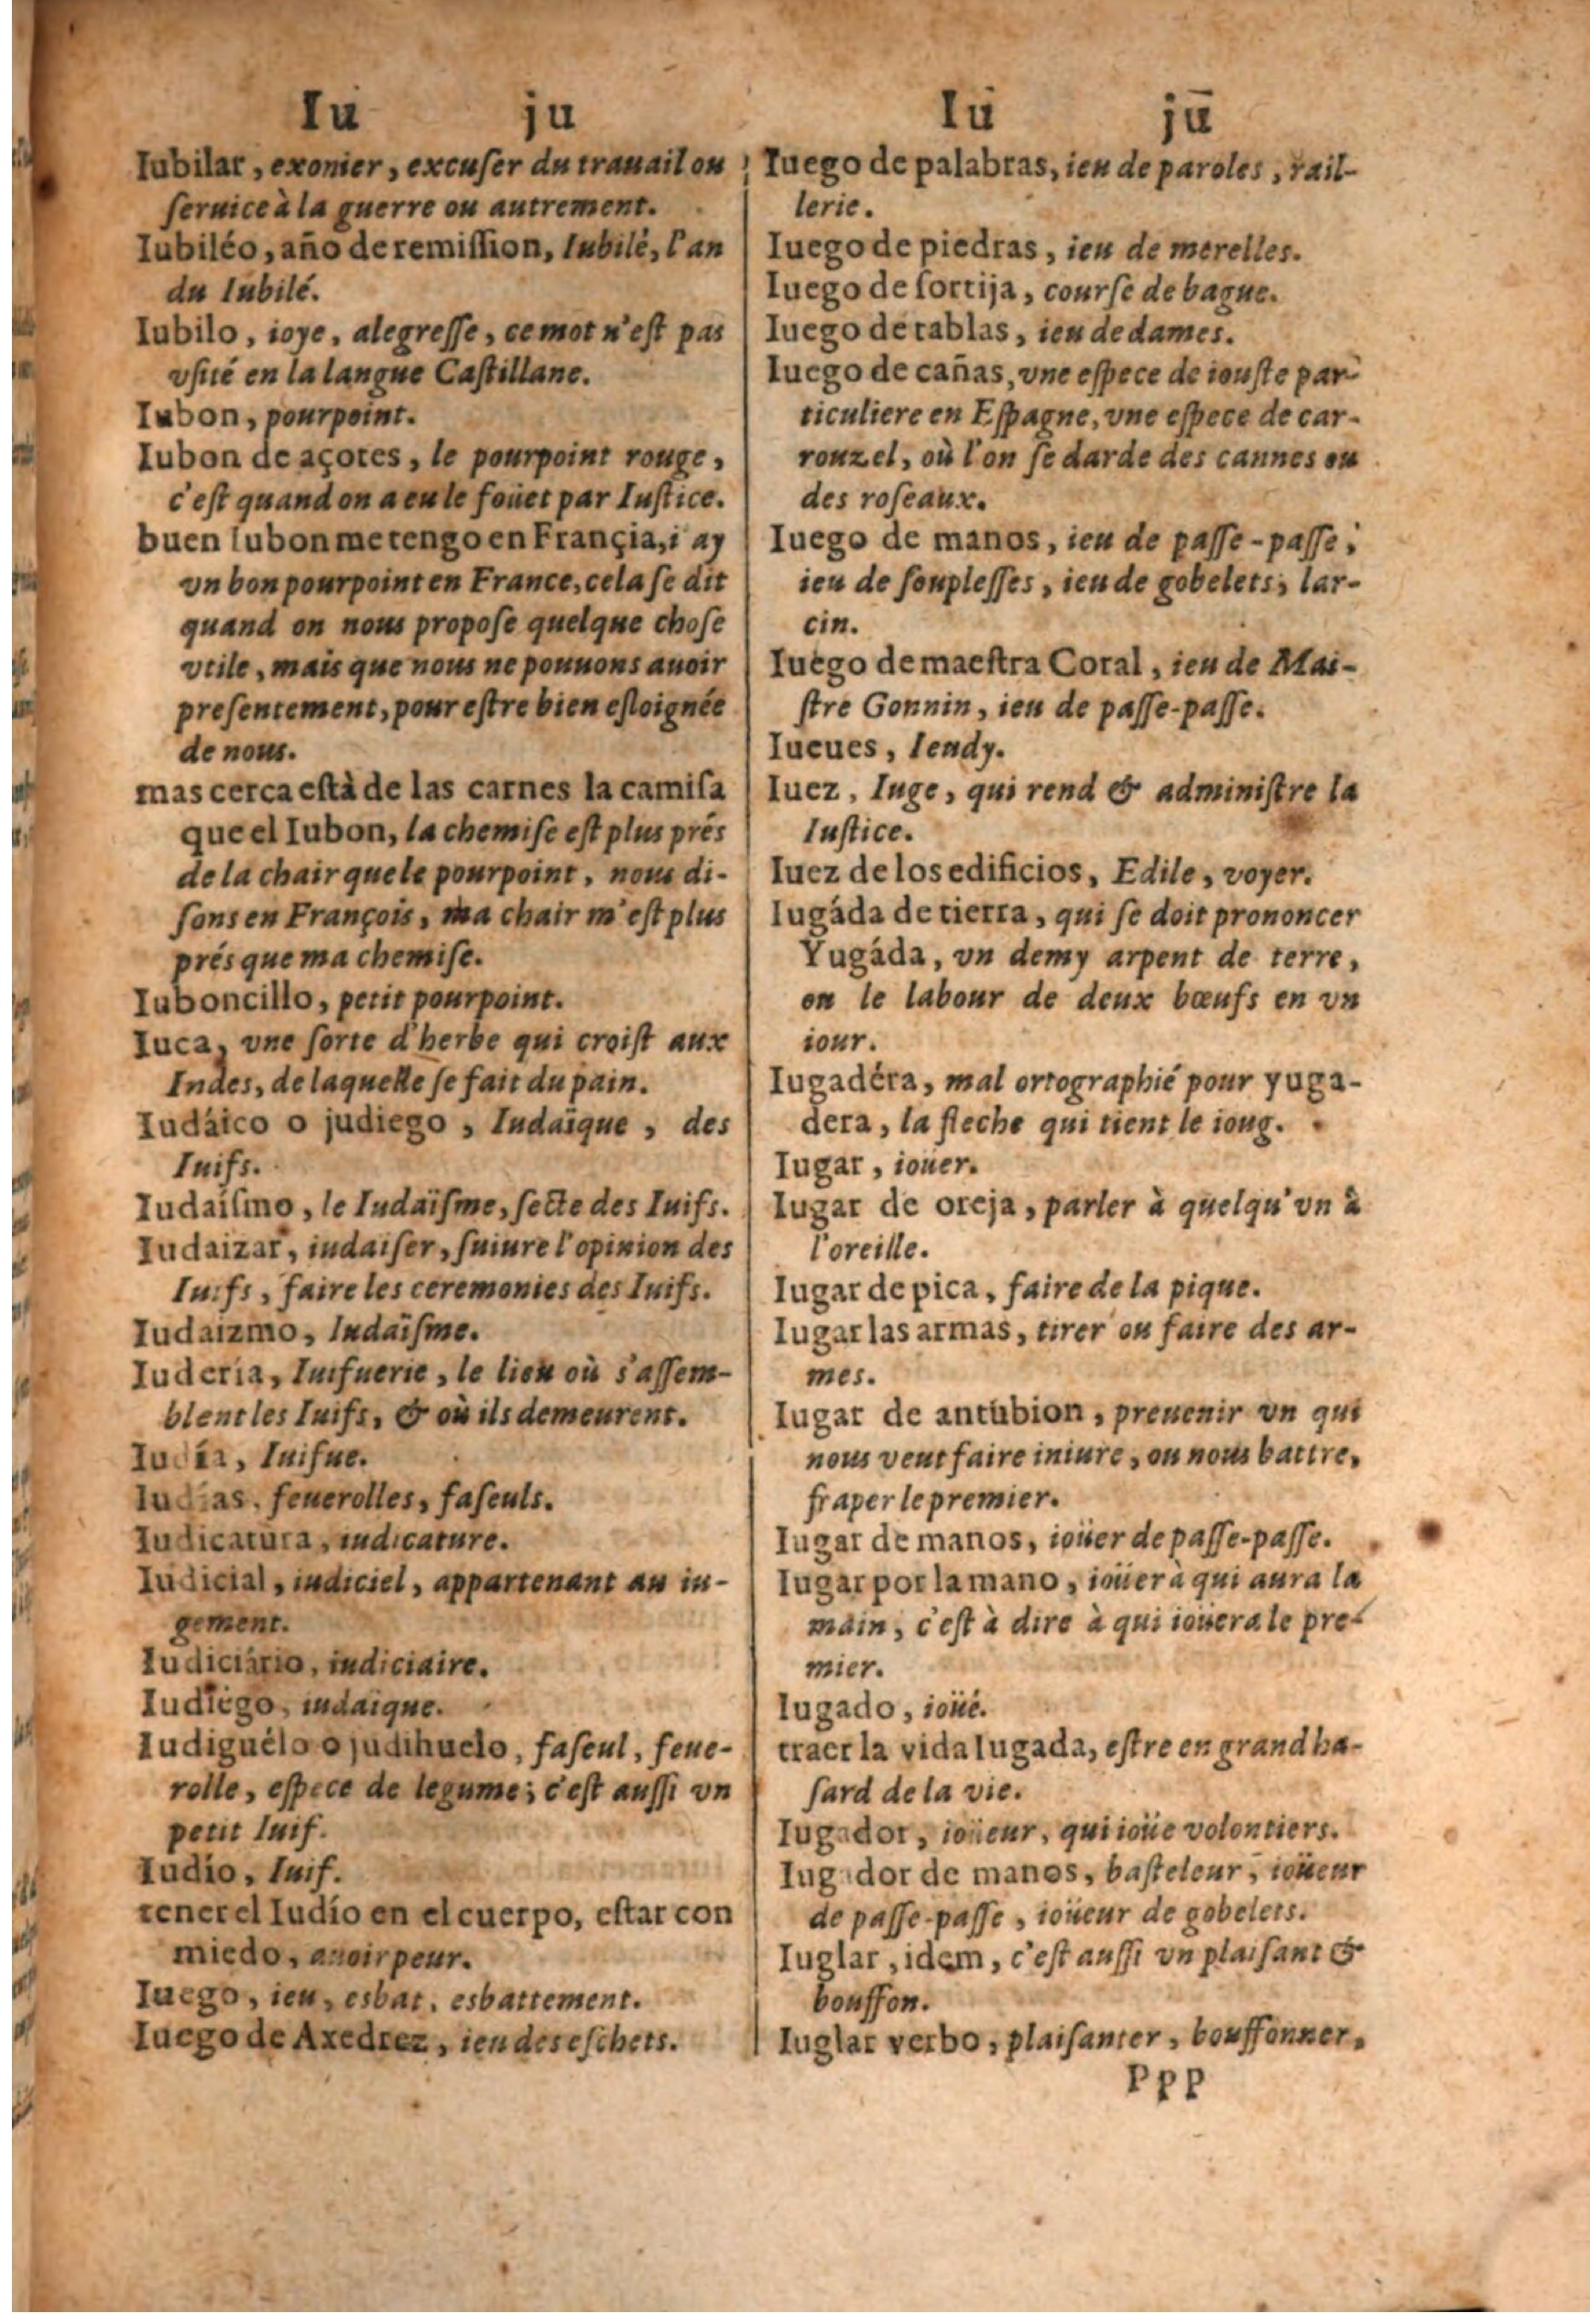 Iu ju
Iubilar, exonier, excuſer du trauail ou
ſeruice à la guerre ou autrement.
Iubiléo, año de remiſſion, Iubilé, l'an
du Iubilé.
Iubilo, ioye, alegreſſe, ce mot n'eſt pas
vſité en la langue Caſtillane.
Iubon, pourpoint.
Iubon de açotes, le pourpoint rouge,
c'eſt quand on a eu le foüet par Iuſtice.
buen Iubon me tengo en Françia, i'ay
vn bon pourpoint en France, cela ſe dit
quand on nous propoſe quelque choſe
vtile, mais que nous ne pouuons auoir
preſentement, pour eſtre bien eſloignée
de nous.
mas cerca eſtà de las carnes la camiſa
que el Iubon, la chemiſe eſt plus prés
de la chair que le pourpoint, nous di-
ſons en François, ma chair m'eſt plus
prés que ma chemiſe.
Iuboncillo, petit pourpoint.
Iuca, vne ſorte d'herbe qui croiſt aux
Indes, de laquelle ſe fait du pain.
Iudáico o judiego, Iudaïque, des
Iuifs.
Iudaíſmo, le Iudaïſme, ſecte des Iuifs.
Iudaizar, iudaiſer, ſuiure l'opinion des
Iuifs, faire les ceremonies des Iuifs.
Iudaizmo, Iudaïſme.
Iudería, Iuifuerie, le lieu où s'aſſem-
blent les Iuifs, & où ils demeurent.
Iudía, Iuifue.
Iudías, feuerolles, faſeuls.
Iudicatura, iudicature.
Iudicial, iudiciel, appartenant au iu-
gement.
Iudiciário, iudiciaire.
Iudiégo, iudaïque.
Iudiguélo o judihuelo, faſeul, feue-
rolle, eſpece de legume; c'eſt auſſi vn
petit Iuif.
Iudío, Iuif.
tener el Iudío en el cuerpo, eſtar con
miedo, auoir peur.
Iuego, ieu, esbat, esbattement.
Iuego de Axedrez, ieu des eſchets.
Iu ju
Iuego de palabras, ieu de paroles, rail-
lerie.
Iuego de piedras, ieu de merelles.
Iuego de ſortija, courſe de bague.
Iuego de tablas, ieu de dames.
Iuego de cañas, vne eſpece de iouſte par-
ticuliere en Eſpagne, vne eſpece de car-
rouzel, où l'on ſe darde des cannes ou
des roſeaux.
Iuego de manos, ieu de paſſe-paſſe,
ieu de ſoupleſſes, ieu de gobelets, lar-
cin.
Iuego de maeſtra Coral, ieu de Mai-
ſtre Gonnin, ieu de paſſe-paſſe.
Iueues, Ieudy.
Iuez, Iuge, qui rend & adminiſtre la
Iuſtice.
Iuez de los edificios, Edile, voyer.
Iugáda de tierra, qui ſe doit prononcer
Yugáda, vn demy arpent de terre,
ou le labour de deux bœufs en vn
iour.
Iugadéra, mal ortographié pour yuga-
dera, la fleche qui tient le ioug.
Iugar, iouer.
Iugar de oreja, parler à quelqu'vn à
l'oreille.
Iugar de pica, faire de la pique.
Iugar las armas, tirer ou faire des ar-
mes.
Iugar de antubion, preuenir vn qui
nous veut faire iniure, ou nous battre,
fraper le premier.
Iugar de manos, ioüer de paſſe-paſſe.
Iugar por la mano, ioüer à qui aura la
main, c'eſt à dire à qui ioüera le pre-
mier.
Iugado, ioüé.
traer la vida Iugada, eſtre en grand ha-
ſard de la vie.
Iugador, ioüeur, qui ioüe volontiers.
Iugador de manos, baſteleur, ioüeur
de paſſe-paſſe, ioüeur de gobelets.
Iuglar, idem, c'eſt auſſi vn plaiſant &
bouffon.
Iuglar verbo, plaiſanter, bouffonner,
Ppp